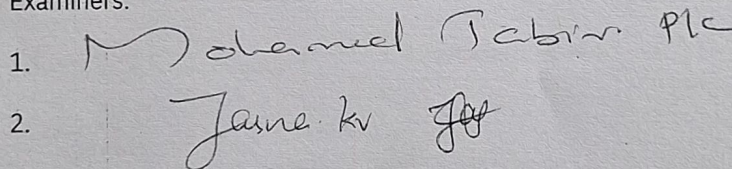 Examiners:
1. Mohamed Jabir Plc
2. Jasna. kv